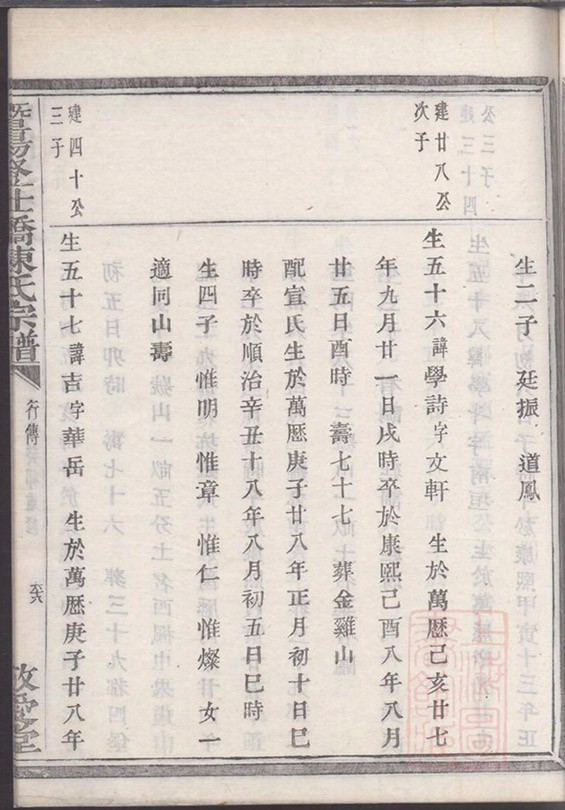 生二子 廷振 道鳳
建廿八公
次子
生五十六諱學詩字文軒 生於萬歷己亥廿七
年九月廿一日戌時卒於康熙己酉八年八月
廿五日酉時 壽七十七 葬金雞山
配宣氏生於萬歷庚子廿八年正月初十日巳
時卒於順治辛丑十八年八月初五日巳時
生四子 惟明 惟章 惟仁 惟燦 女一
適同山壽
建四十公
三子
生五十七諱吉字華岳 生於萬歷庚子廿八年
橋陳氏宗譜
行傳